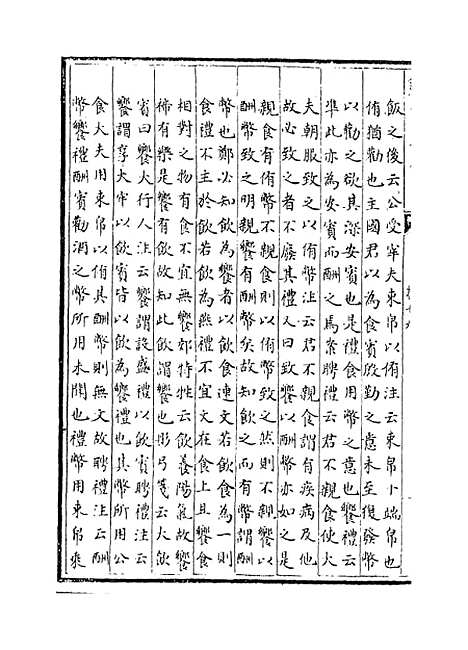 飯之後云公受宰夫束帛以侑注云束帛十端帛也
侑猶勸也主國君以為食賓殷勤之意未至復發幣
以勸之欲其深安賓也是禮食用幣之意也饗禮云
準此亦為安賓而酬之焉案聘禮云君不親食使大
夫朝服致之以侑幣注云君不親食謂有疾病及他
故必致之者不廢其禮又曰致饗以酬幣亦如之是
親食有侑幣不親食則以侑幣致之然則不親饗以
酬幣致之明親饗有酬幣矣故知飲之而有幣謂酬
幣也鄭必知飲為饗者以飲食連文若飲食為一則
食禮不主於飲若飲為燕禮不宜文在食上且饗食
相對之物有食不宜無饗郊特牲云飲養陽氣故饗
禘有樂是饗有飲故知此飲謂饗也彤弓箋云大飲
賓曰饗大行人注云饗謂設盛禮以飲賓聘禮注云
饗謂享大牢以飲賓皆以飲為饗禮也其幣所用公
食大夫用束帛以侑其酬幣則無文故聘禮注云酬
幣饗禮酬賓勸酒之幣所用未聞也禮幣用束帛乘